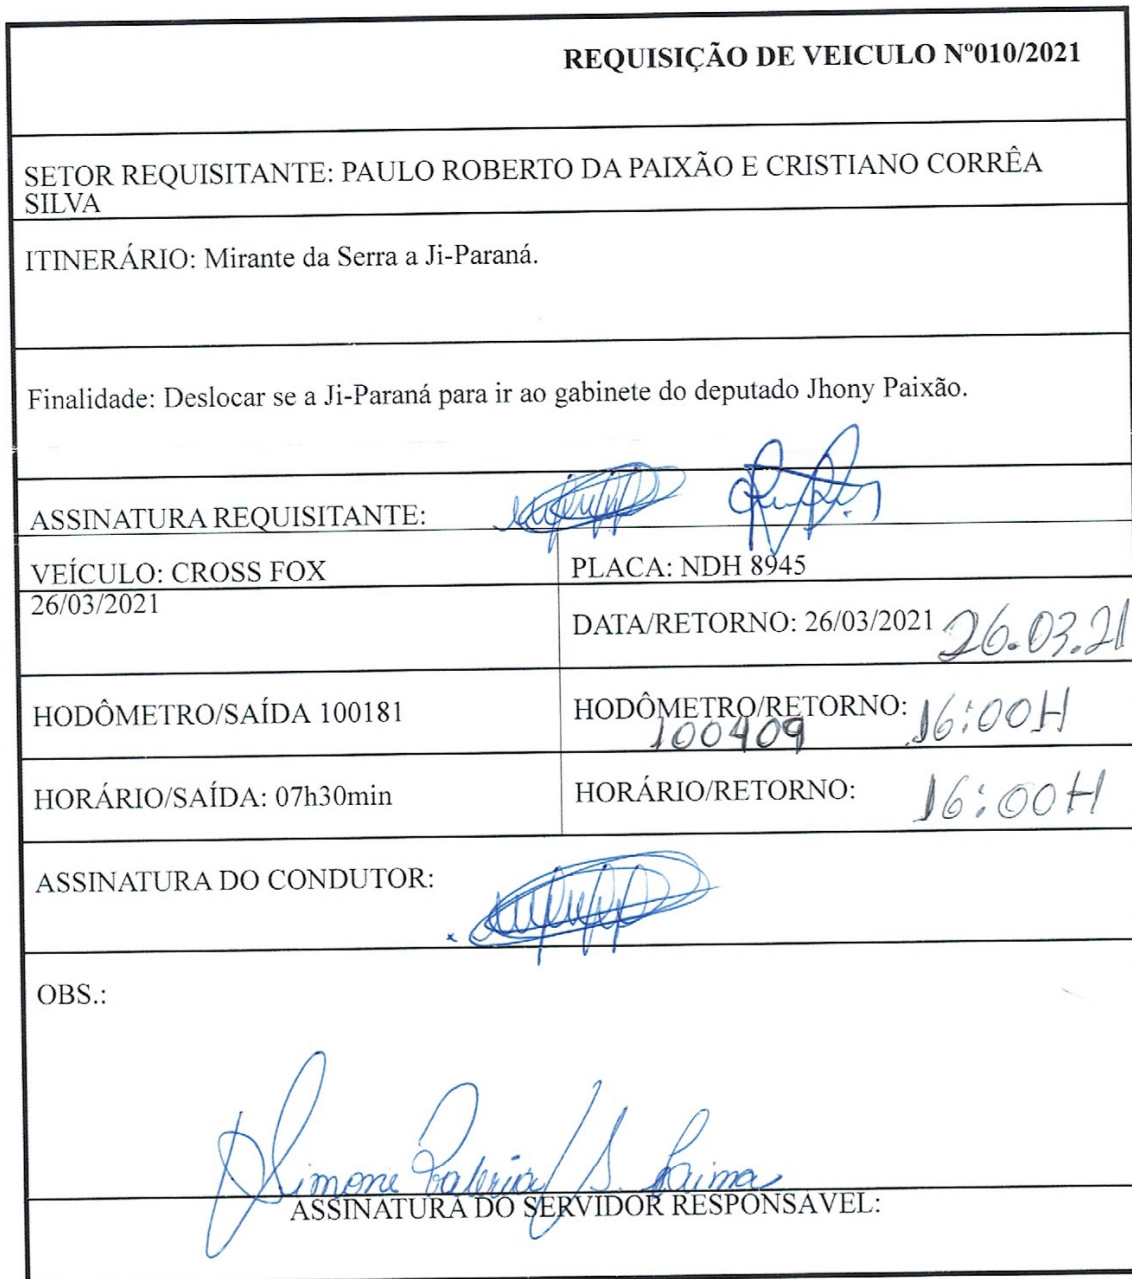 REQUISIÇÃO DE VEICULO Nº010/2021
SETOR REQUISITANTE: PAULO ROBERTO DA PAIXÃO E CRISTIANO CORRÊA
SILVA
ITINERÁRIO: Mirante da Serra a Ji-Paraná.
Finalidade: Deslocar se a Ji-Paraná para ir ao gabinete do deputado Jhony Paixão.
ASSINATURA REQUISITANTE:
VEÍCULO: CROSS FOX
PLACA: NDH 8945
26/03/2021
DATA/RETORNO: 26/03/2021 26.03.21
HODÔMETRO/SAÍDA 100181
HODÔMETRO/RETORNO: 16:00H
100409
HORÁRIO/SAÍDA: 07h30min
HORÁRIO/RETORNO: 16:00H
ASSINATURA DO CONDUTOR:
OBS.:
Simone
ASSINATURA DO SERVIDOR RESPONSAVEL: